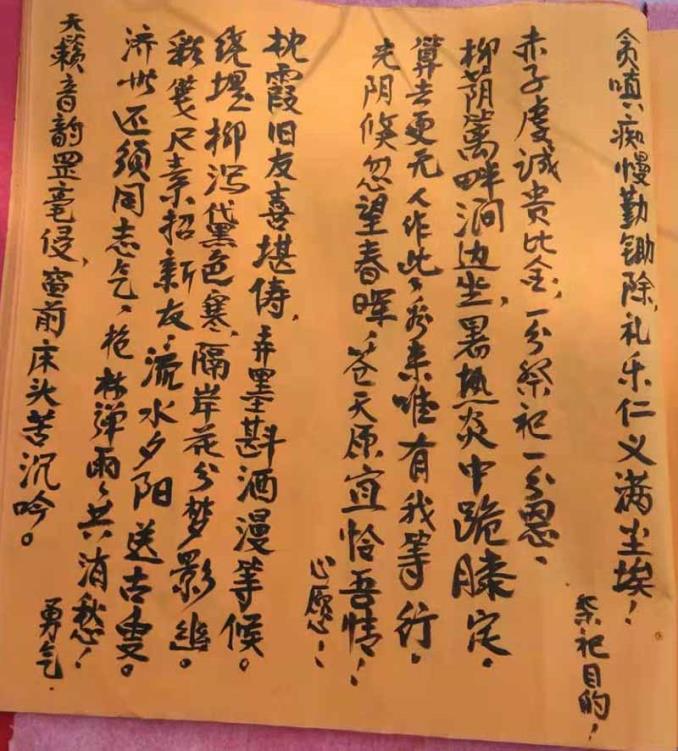 贪嗔痴慢勤锄除,礼乐仁义满尘埃!
祭祀目的!
赤子虔诚贵比金,一分祭祀一分恩、
柳荫篱畔涧边坐,暑热炎中跪膝定。
算去更无人作此,看来唯有我等行。
光阴倏忽望春晖,苍天原宜怜吾情!
心愿!
枕霞旧友喜堪俦,弄墨斟酒漫等候。
绕堤柳泻黛色寒,隔岸花分梦影追。
彩笺尺素招新友,流水夕阳送古
济世还须同志气,枪林弹雨共消愁!
天籁音韵罡毫侵,窗前床头苦沉吟。
勇气